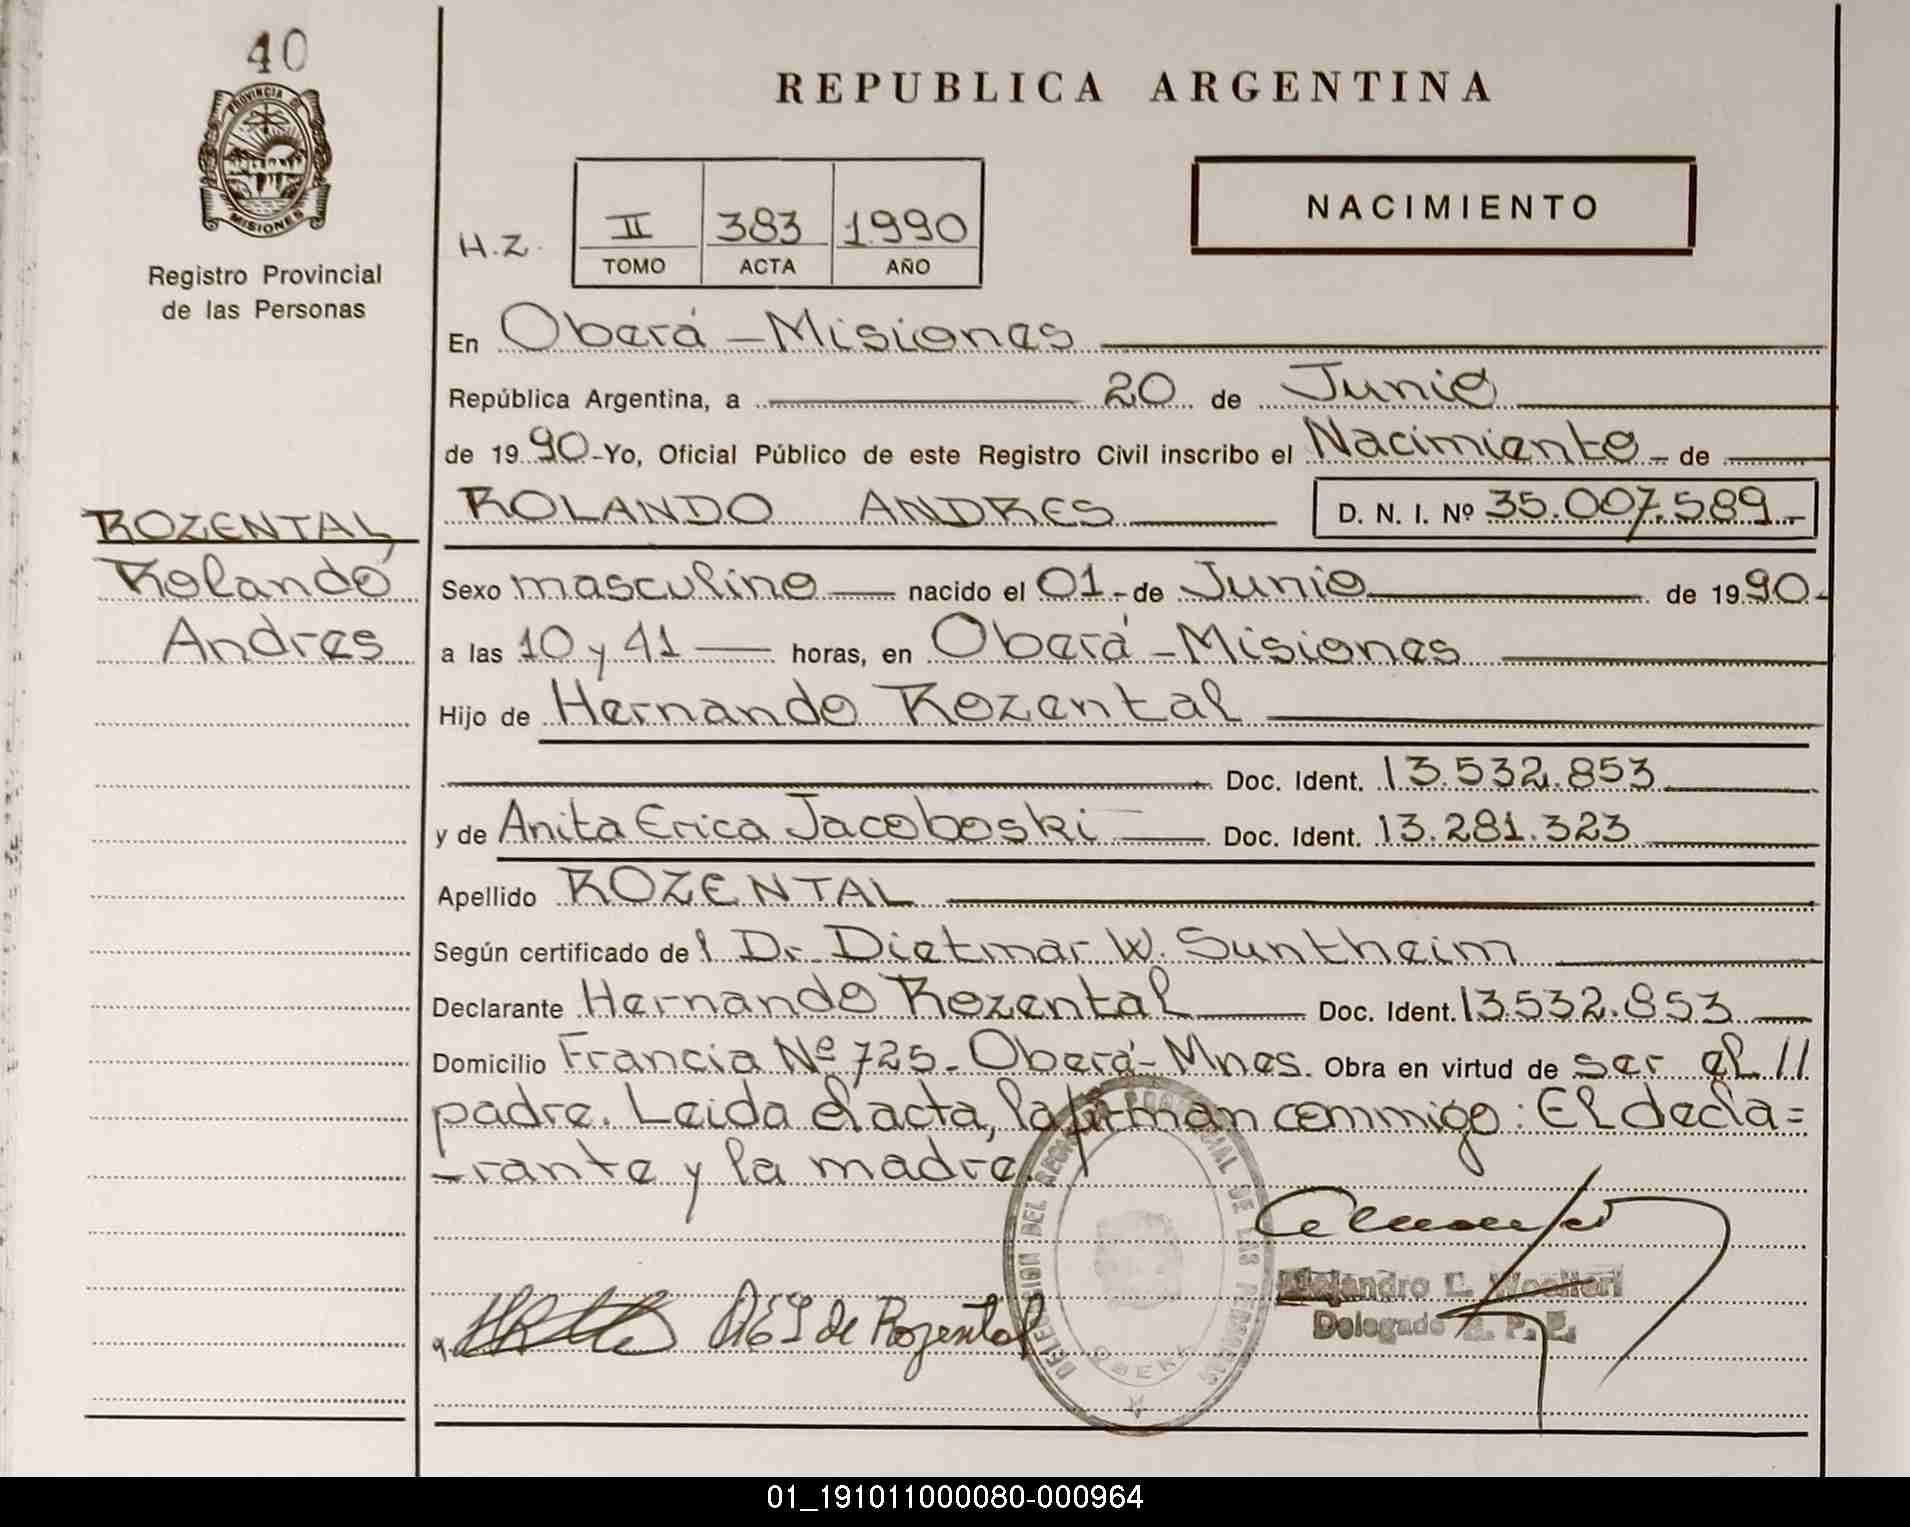 40
PROVINCIA DE
MISIONES
Registro Provincial
de las Personas
ROZENTAL,
Rolando
Andres
REPUBLICA ARGENTINA
NACIMIENTO
H.Z.
II 383 1990
TOMO ACTA AÑO
En Oberá - Misiones
República Argentina, a 20 de Junio
de 1990 - Yo, Oficial Público de este Registro Civil inscribo el Nacimiento - de
ROLANDO ANDRES D. N. I. Nº 35.007.589 -
Sexo masculino nacido el 01 - de Junio de 1990 -
a las 10 y 41 horas, en Oberá - Misiones
Hijo de Hernando Rozental
Doc. Ident. 13.532.853
y de Anita Erica Jacoboski Doc. Ident. 13.281.323
Apellido ROZENTAL
Según certificado del Dr. Dietmar W. Suntheim
Declarante Hernando Rozental Doc. Ident. 13.532.853
Domicilio Francia Nº 725 - Oberá - Mnes. Obra en virtud de ser el //
padre. Leida el acta, la firman conmmigo: El decla=
-rante y la madre.
DELEGACION DEL REGISTRO PROVINCIAL DE LAS PERSONAS
OBERA
Alejandro
Delegado R. P. P.
de Rozental
01_191011000080-000964